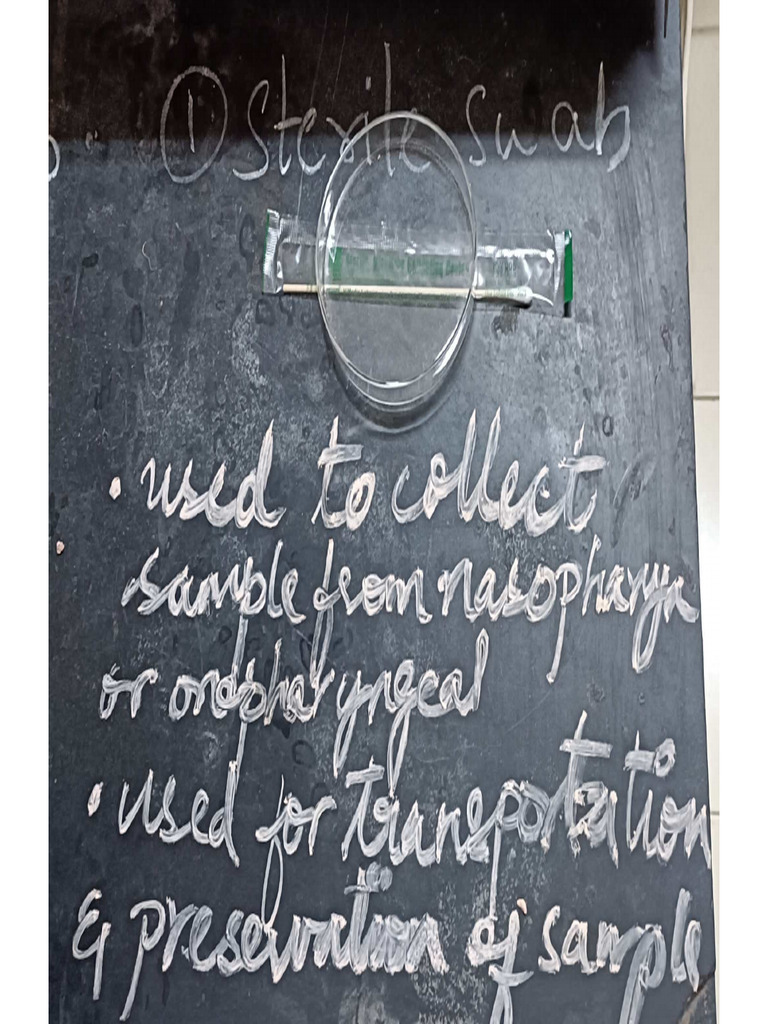 ① Sterile Swab
• used to collect
sample from nasopharyn
or oropharyngeal
• used for transportation
& preservation of sample